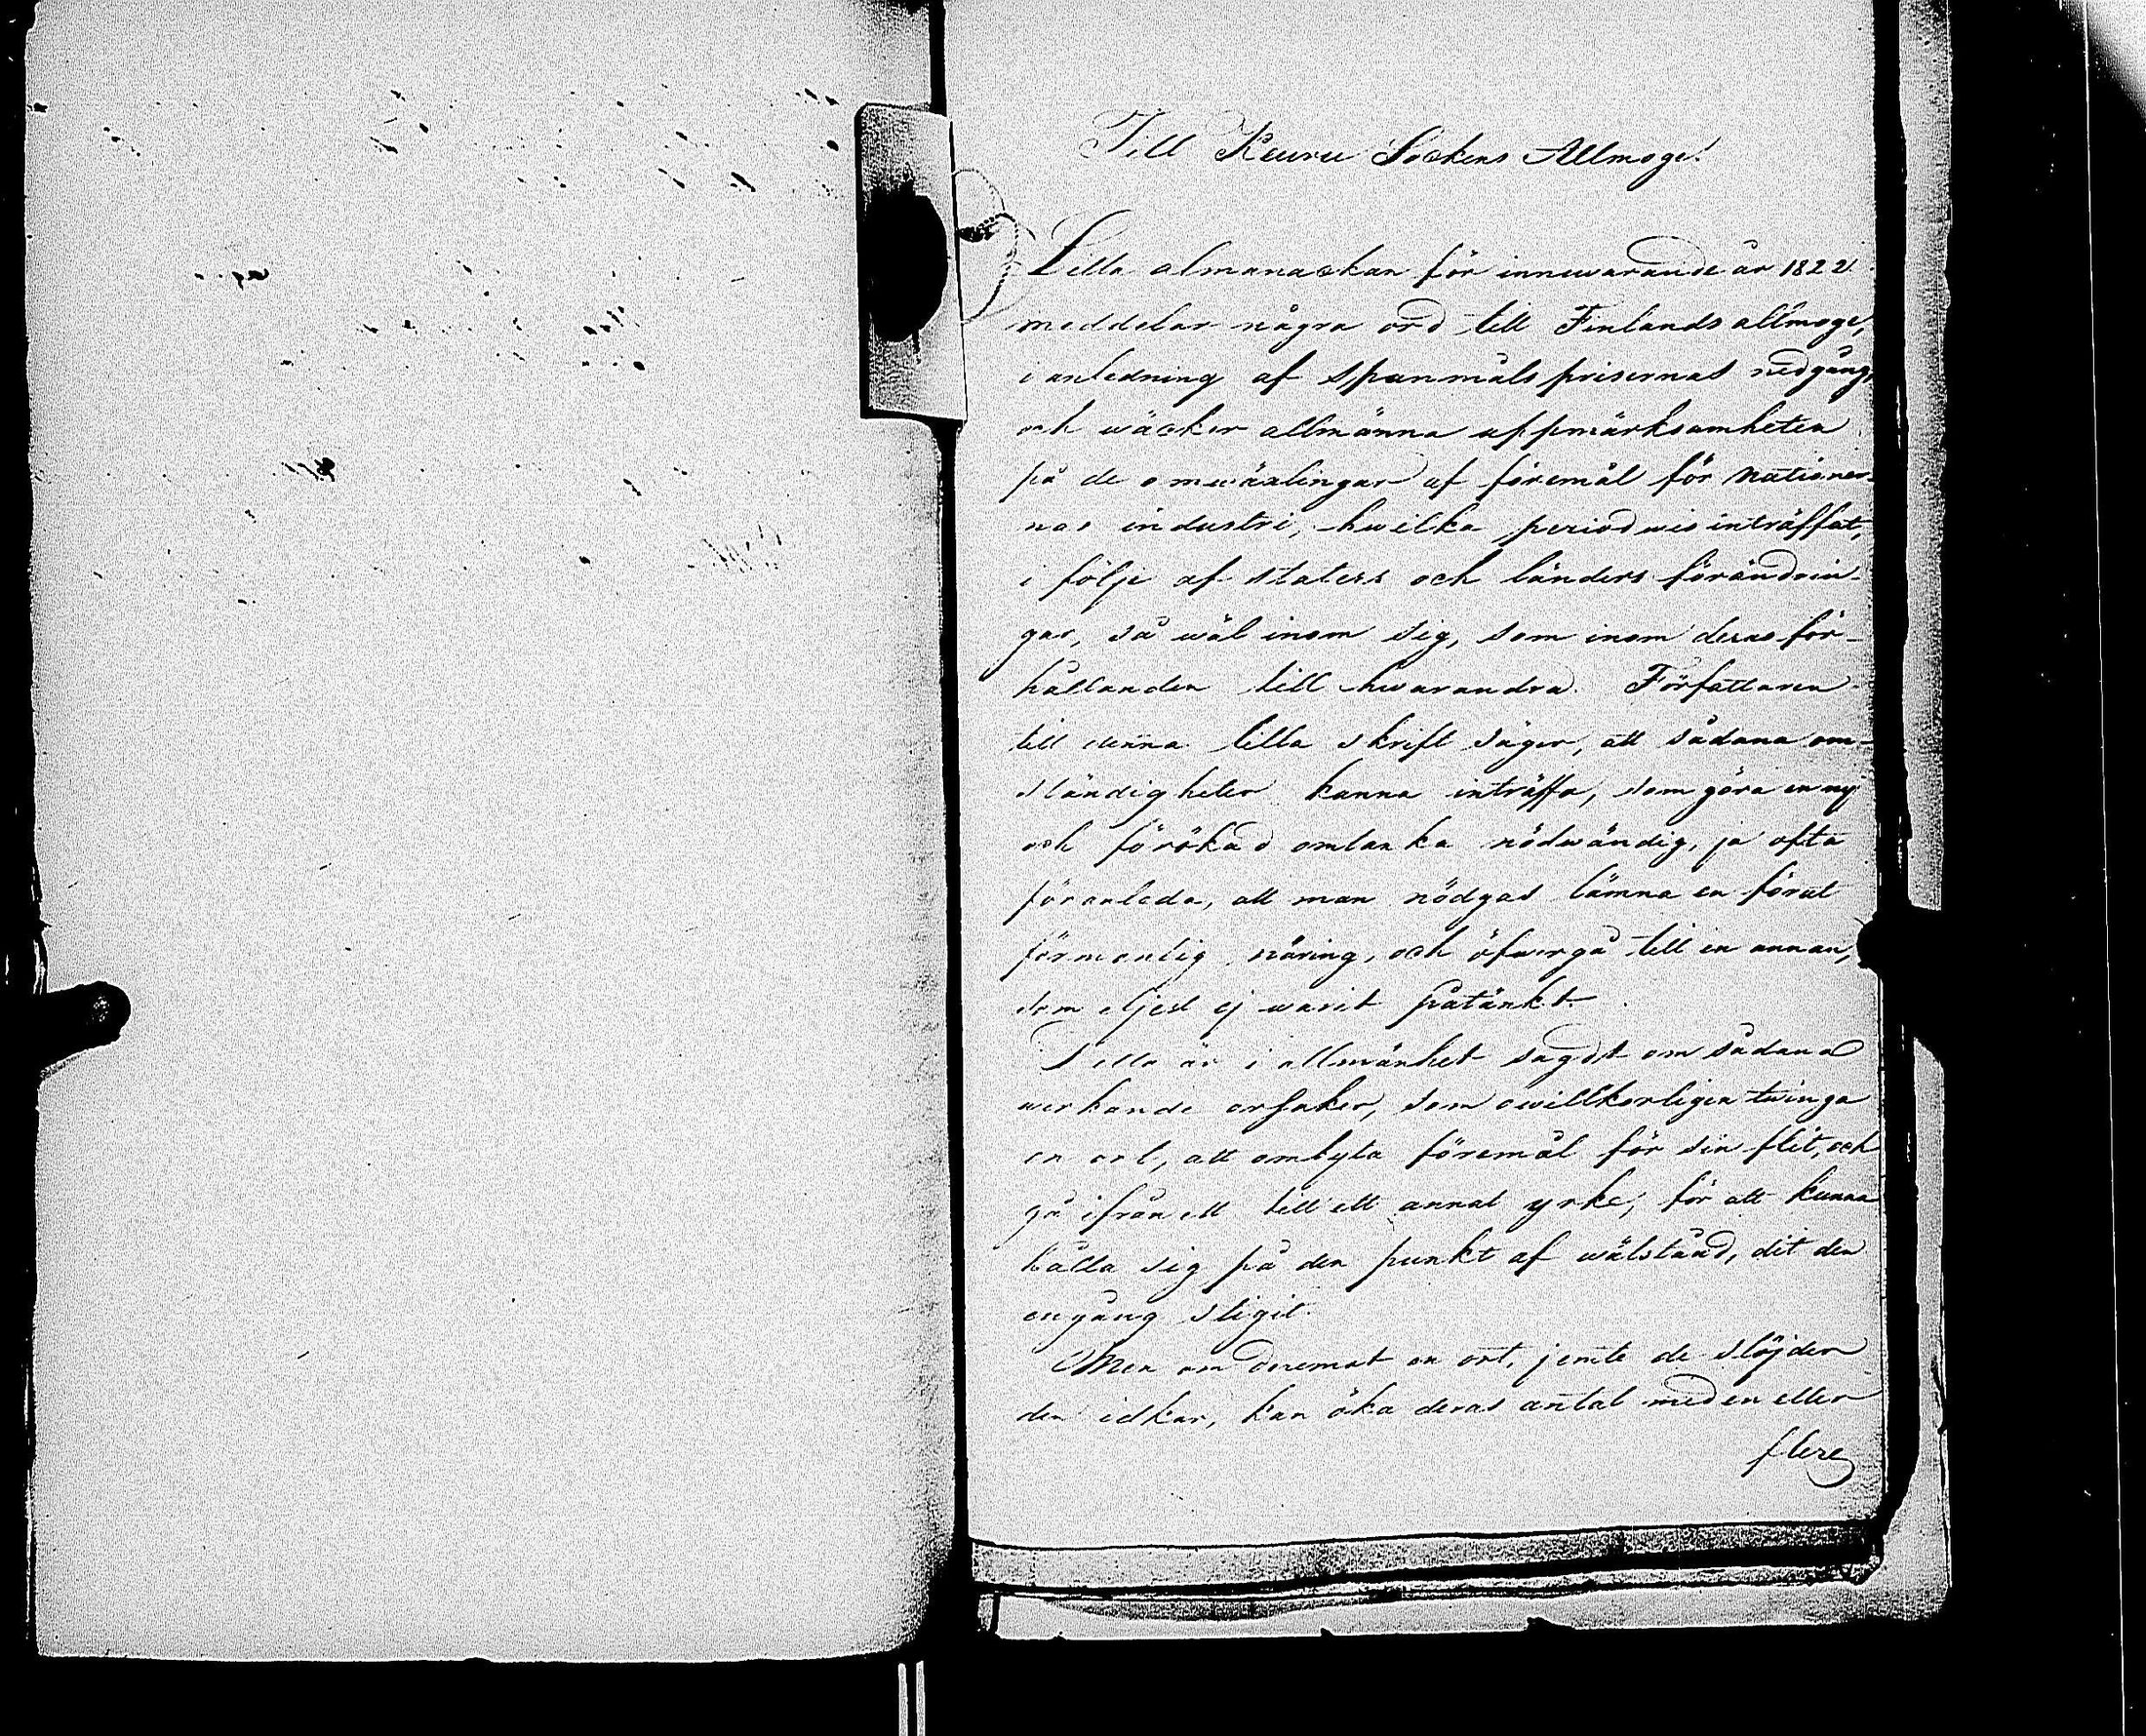 Till Keuru Sockens Allmoge!
Lilla almanackan för innewarande år 1822
meddelar några ord till Finlands allmoge,
i anledning af spanmåls prisernas nedgång,
och wäcker allmänna uppmärksamheten
på de omwäxlingar af föremål för nationer-
nas industri, hwilka periodwis inträffat,
i följe af staters och länders förändrin-
gar, så wäl inom sig, som inom deras för-
hållanden till hwarandra. Författaren
till denna lilla skrift säger, att sådana om-
ständigheter kunna inträffa, som göra en ny
och förökad omtanka nödwändig, ja ofta
föranleda, att man nödgas lämna en förut
förmonlig näring, och öfwergå till en annan,
som eljest ej warit påtänkt.
Detta är i allmänhet sagdt om sådana
werkande orsaker, som owillkorligen twinga
en ort, att ombyta föremål för sin flit, och
gå ifrån ett till ett annat yrke, för att kunna
hålla sig på den punkt af wälstånd, dit den
engång stigit.
Men om deremot en ort, jemte de slöjder
den idkar, kan öka deras antal med en eller
flere